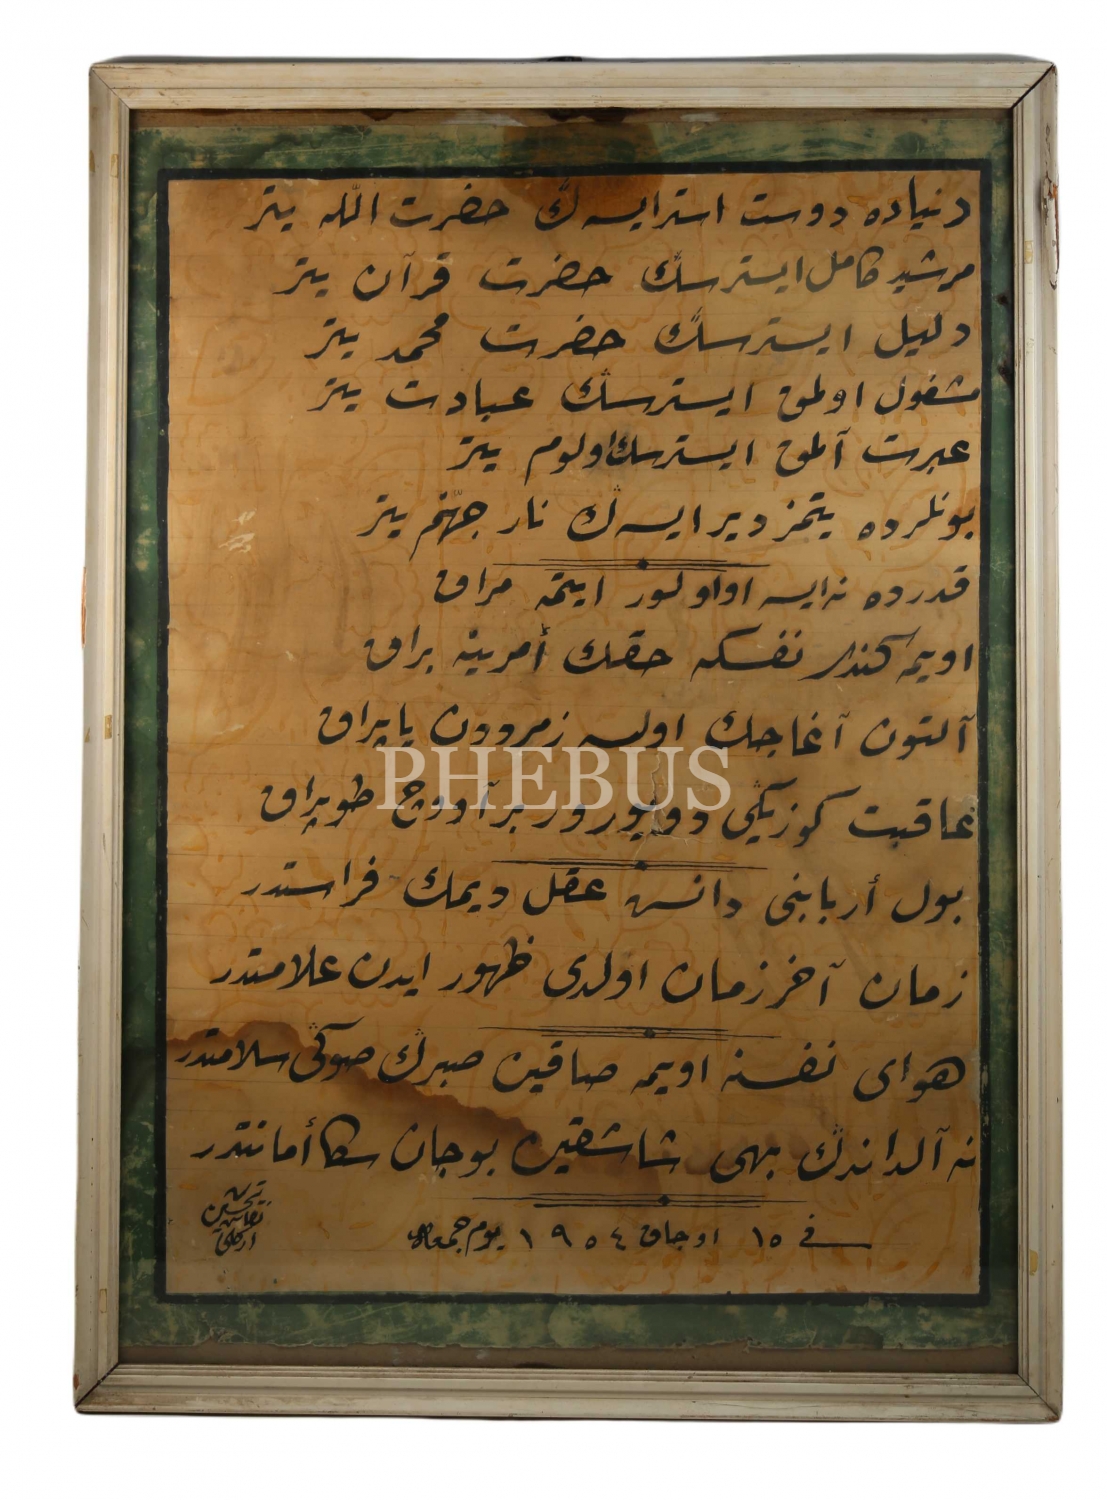 دنیاده دوست استرایسه ڭ حضرت اللّه یتر
مرشید کامل ایسترسڭ حضرت قرآن یتر
دلیل ایسترسڭ حضرت محمد یتر
مشغول اولمق ایسترسڭ عبادت یتر
عبرت آلمق ایسترسڭ اولوم یتر
بونلرده یتمز دیرایسه ڭ نار جهنّم یتر
قدرده نه ایسه اواولور ایتمه مراق
اویمه کندی نفسکه حقك أمرینه براق
آلتون آغاجك اولسه زمروددن یاپراق
PHEBUS
عاقبت کوزیڭی دویورور بر آووج طوپراق
بول أربابنی دانس عقل دیمك فراستدر
زمان آخر زمان اولدی ظهور ایدن علامتدر
هوای نفسنه اویمه صاقین صبرڭ صوڭی سلامتدر
نه آلداندڭ بهی شاشقین بوجان سکا أمانتدر
فی ١٥ اوجاق ١٩٥٤ یوم جمعه
تحسین
نقاش
ارکلی